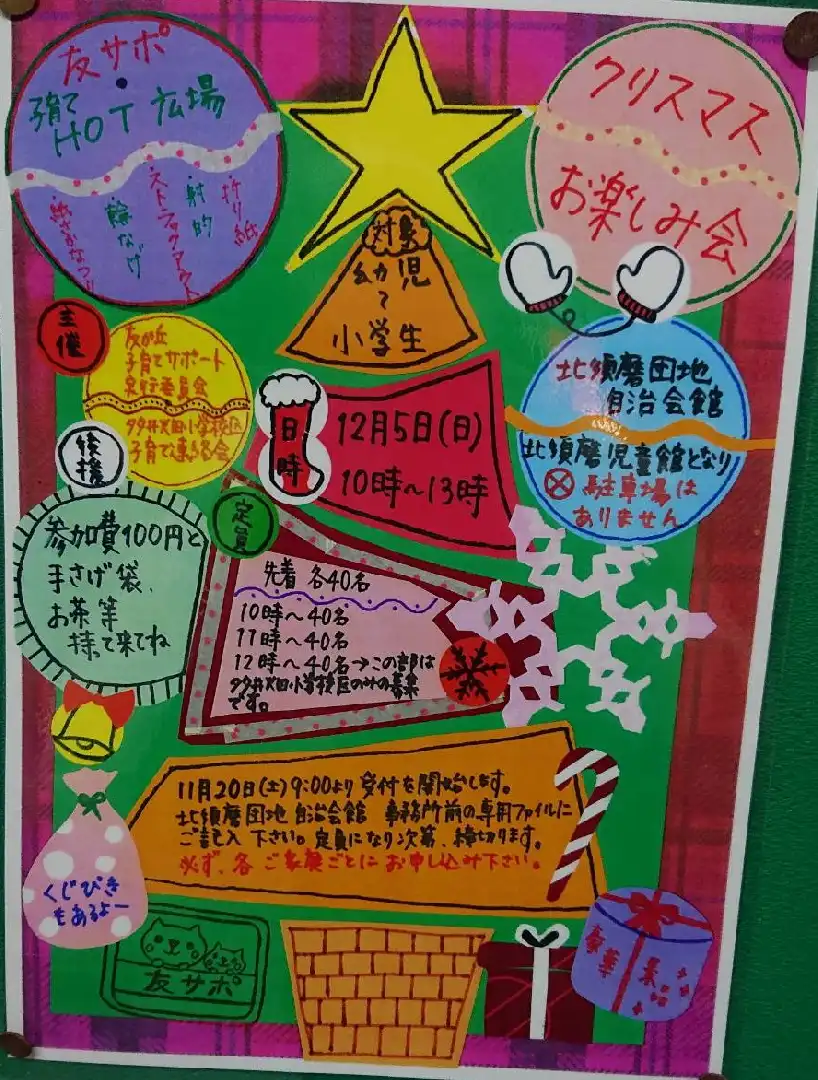 友サポ
子育て
HOT 広場
折り紙
射的
ストラックアウト
輪なげ
紙さかなつり
クリスマス
お楽しみ会
対象
幼児
て
小学生
主催
友が丘
子育てサポート
実行委員会
後援
多井畑小学校区
子育て連絡会
日時
12月5日(日)
10時〜13時
北須磨団地
自治会館
北須磨児童館となり
駐車場は
ありません
参加費100円と
手さげ袋、
お茶等
持って来てね
定員
先着 各40名
10時〜40名
11時〜40名
12時〜40名→この部は
多井畑小学校区のみの募集
です。
11月20日(土)9:00より受付を開始します。
北須磨団地 自治会館 事務所前の専用ファイルに
ご記入下さい。定員になり次第、締切ります。
必ず、各ご家庭ごとにお申し込み下さい。
くじびき
もあるよー
友サポ
豪華
景品